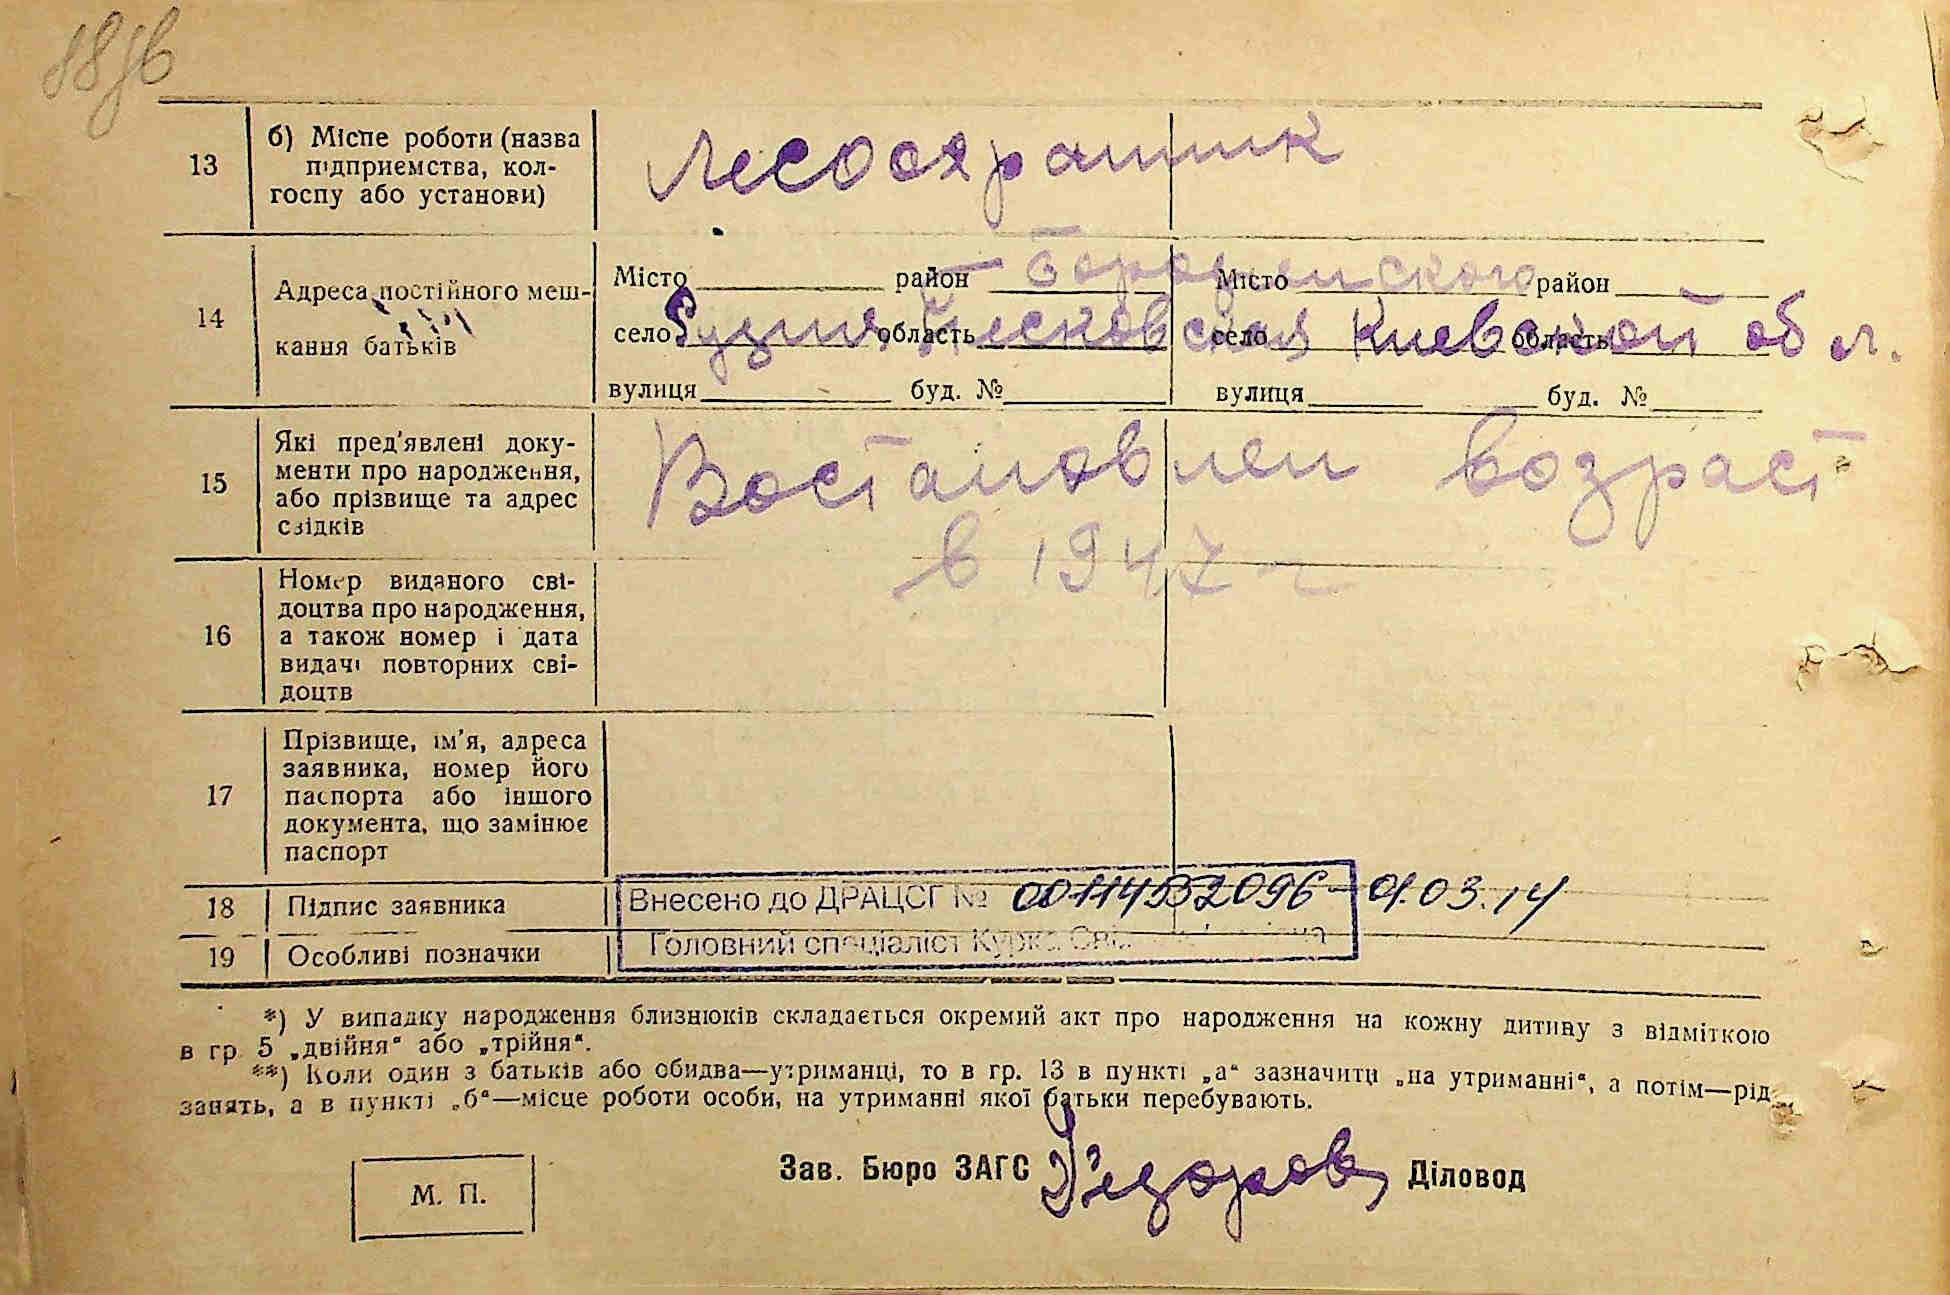 13 б) Місце роботи (назва
підприємства, кол-
госпу або установи)
лесоохранник
14 Адреса постійного меш-
кання батьків
Місто район Місто район
Бородянского
село область село область
Киевской обл.
вулиця буд. № вулиця буд. №
15 Які пред'явлені доку-
менти про народження,
або прізвище та адрес
свідків
Востановлен возраст
в 1947 г
16 Номер виданого сві-
доцтва про народження,
а також номер і дата
видачі повторних сві-
доцтв
17 Прізвище, ім'я, адреса
заявника, номер його
паспорта або іншого
документа, що замінює
паспорт
18 Підпис заявника
Внесено до ДРАЦСГ № 00114532096 - 01.03.14
19 Особливі позначки
Головний спеціаліст
*) У випадку народження близнюків складається окремий акт про народження на кожну дитину з відміткою
в гр. 5 „двійня“ або „трійня“.
**) Коли один з батьків або обидва—утриманці, то в гр. 13 в пункті „а“ зазначити „на утриманні“, а потім—рід
занять, а в пункті „б“—місце роботи особи, на утриманні якої батьки перебувають.
Зав. Бюро ЗАГС Діловод
М. П.